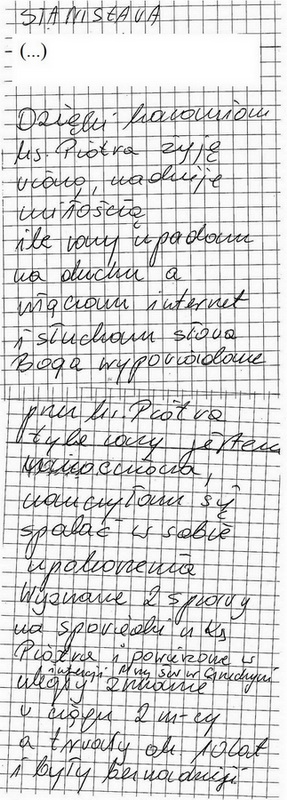 STANISŁAVA
(...)
Dzięki kazaniom
ks. Piotra żyję
wiarą, nadzieję
miłością
ile razy upadam
na duchu a
włączam internet
i słucham słowa
Boga wypowiadane
przez ks. Piotra
tyle razy jestem
wzmocniona,
nauczyłam się
spalać w sobie
upokorzenia
Wyznane 2 sprawy
na spowiedzi u ks
Piotra i powierzone w
intencji Mszy Św w
uległy zmianie
w ciągu 2 m-cy
a trwały ok 10 lat
i były beznadzieji